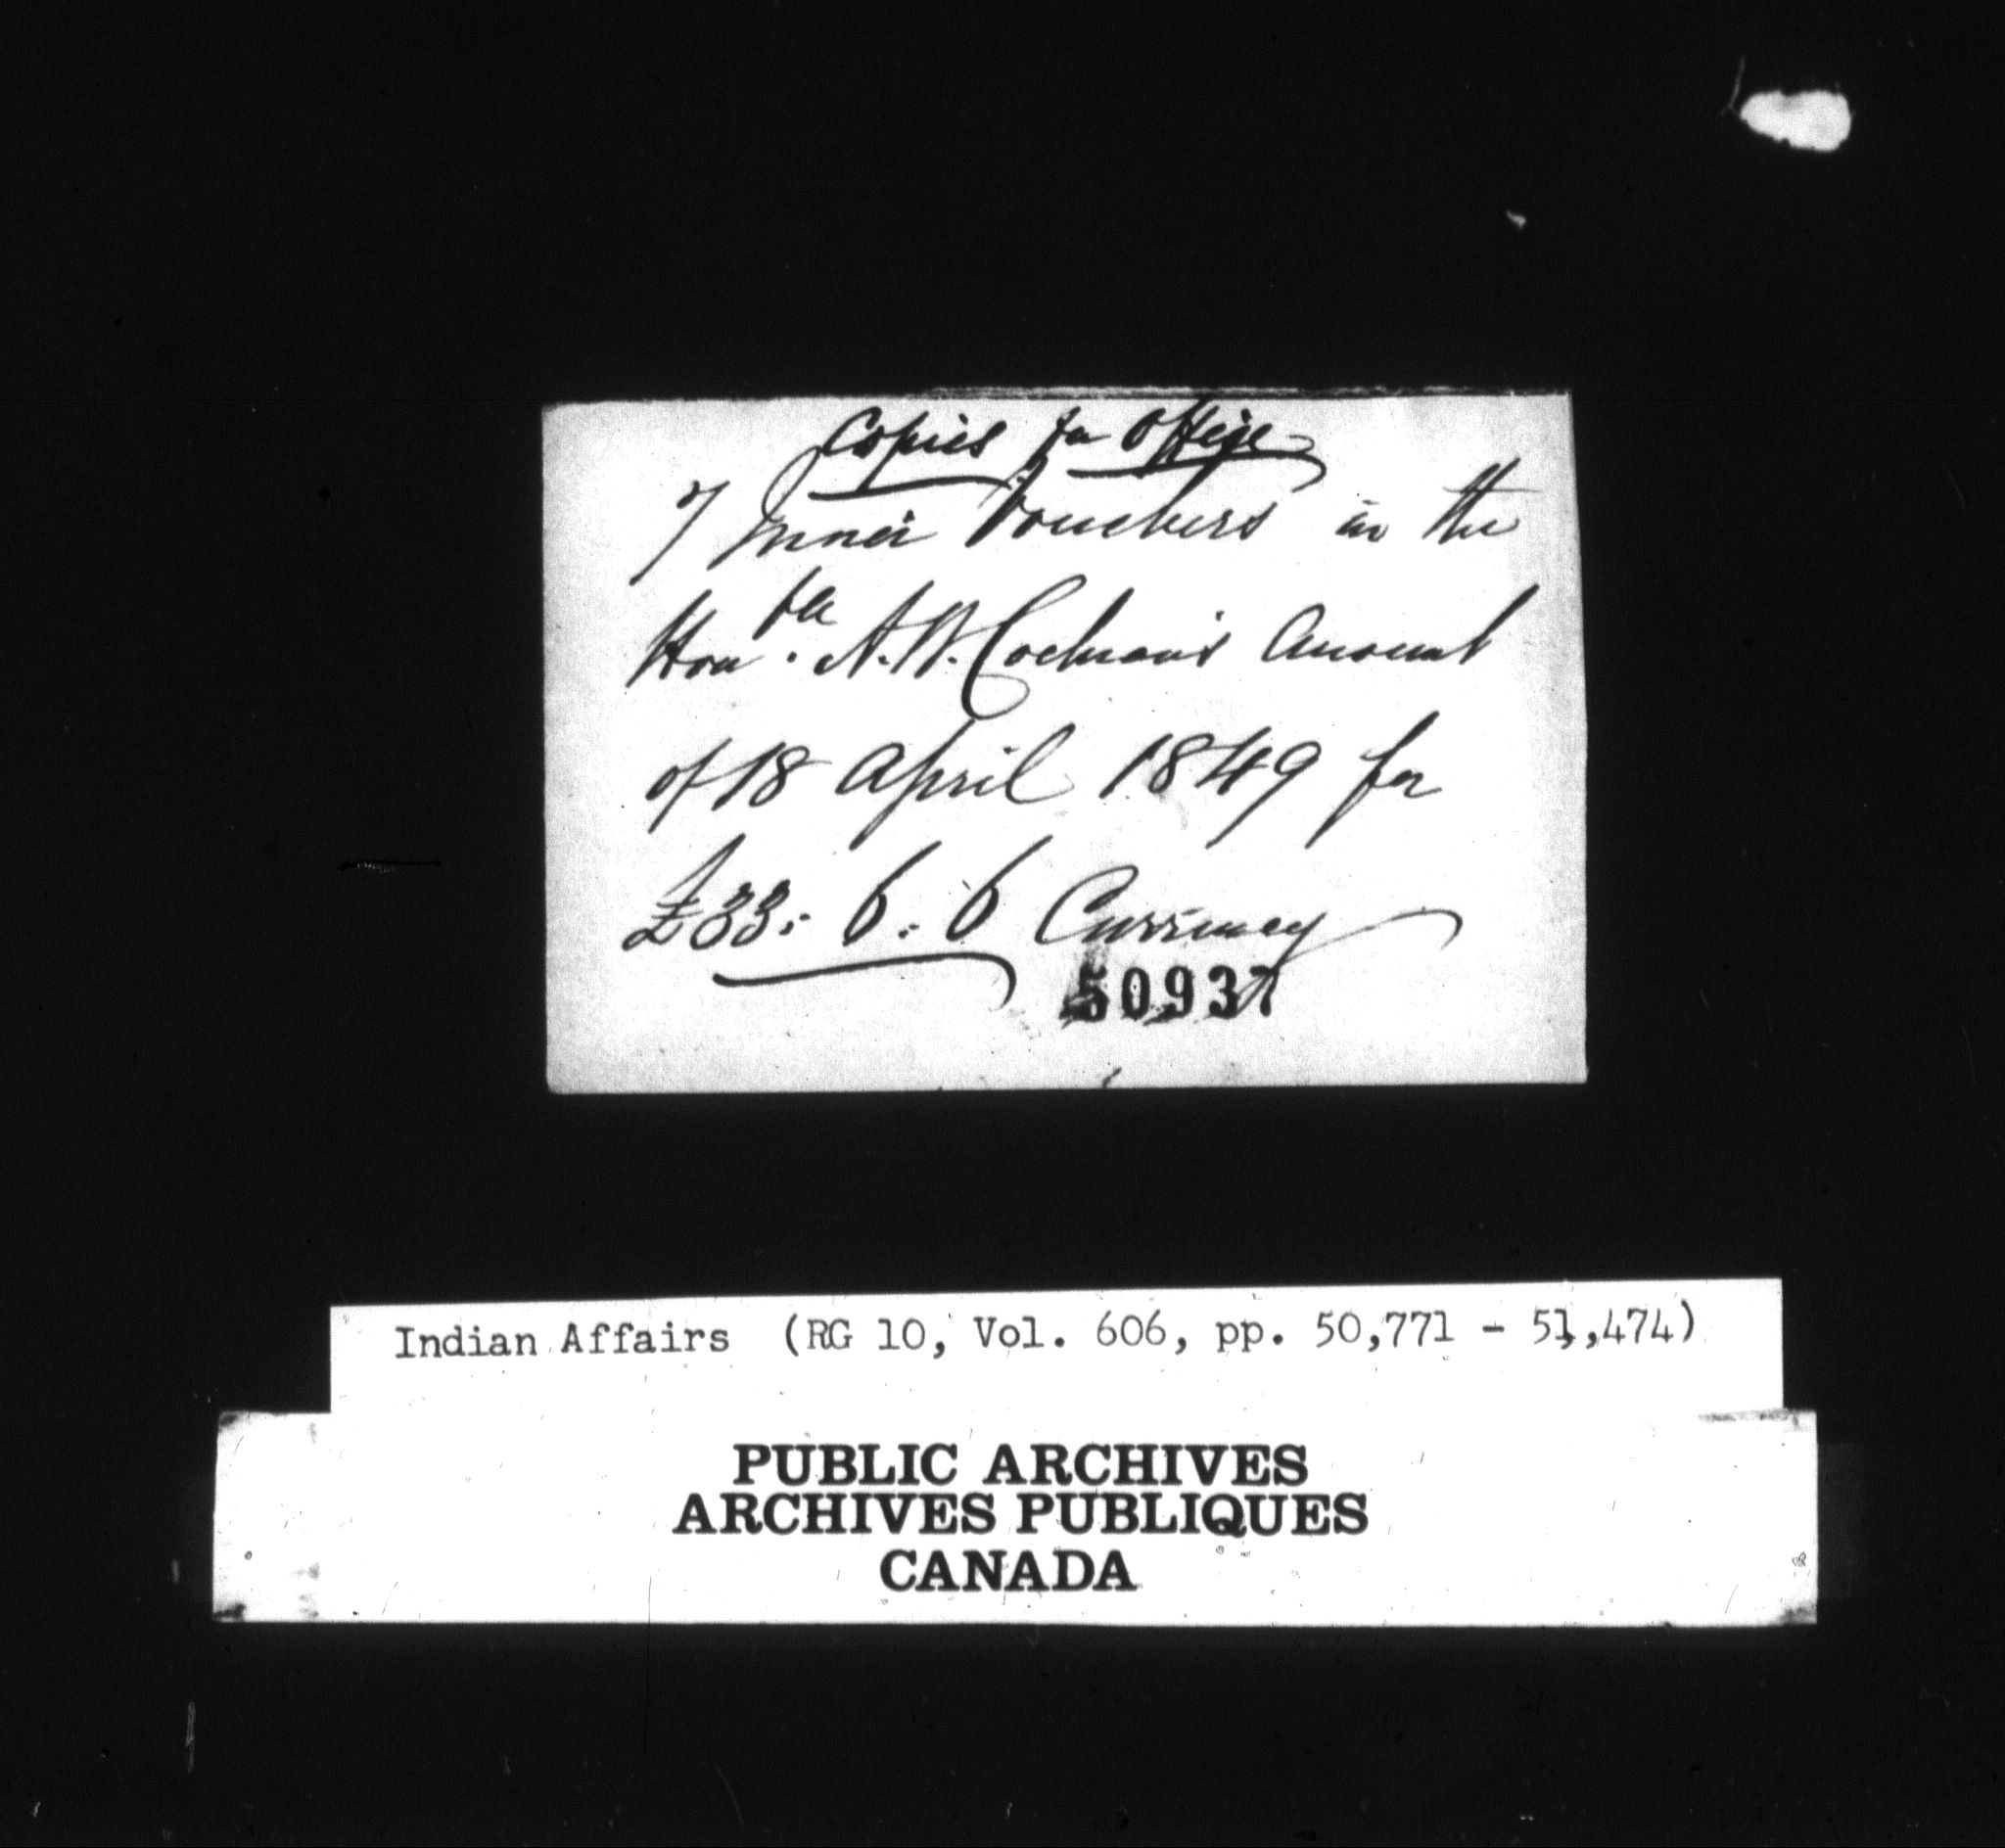 Copies for Office
7 Inner Vouchers in the
Hon.ble A.W. Cochran's Account
of 18 April 1849 for
£33: 6: 6 Currency
50937
Indian Affairs (RG 10, Vol. 606, pp. 50,771 - 51,474)
PUBLIC ARCHIVES
ARCHIVES PUBLIQUES
CANADA